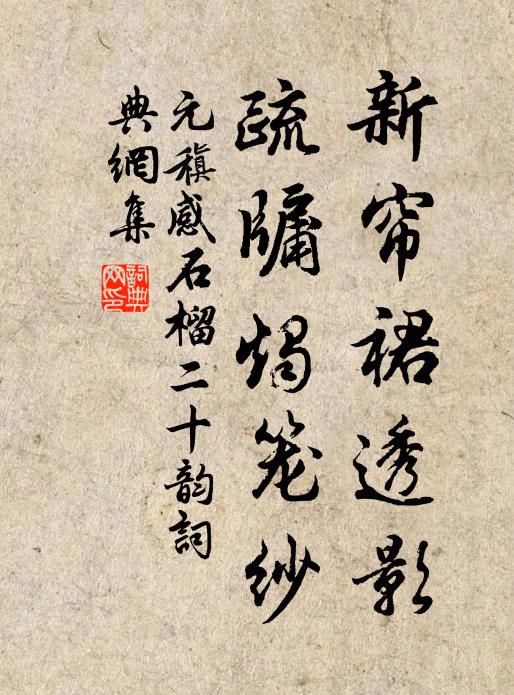 新帘裙透影
疏牖燭笼纱
元稹感石榴二十韵詞
典網集
詞典網印